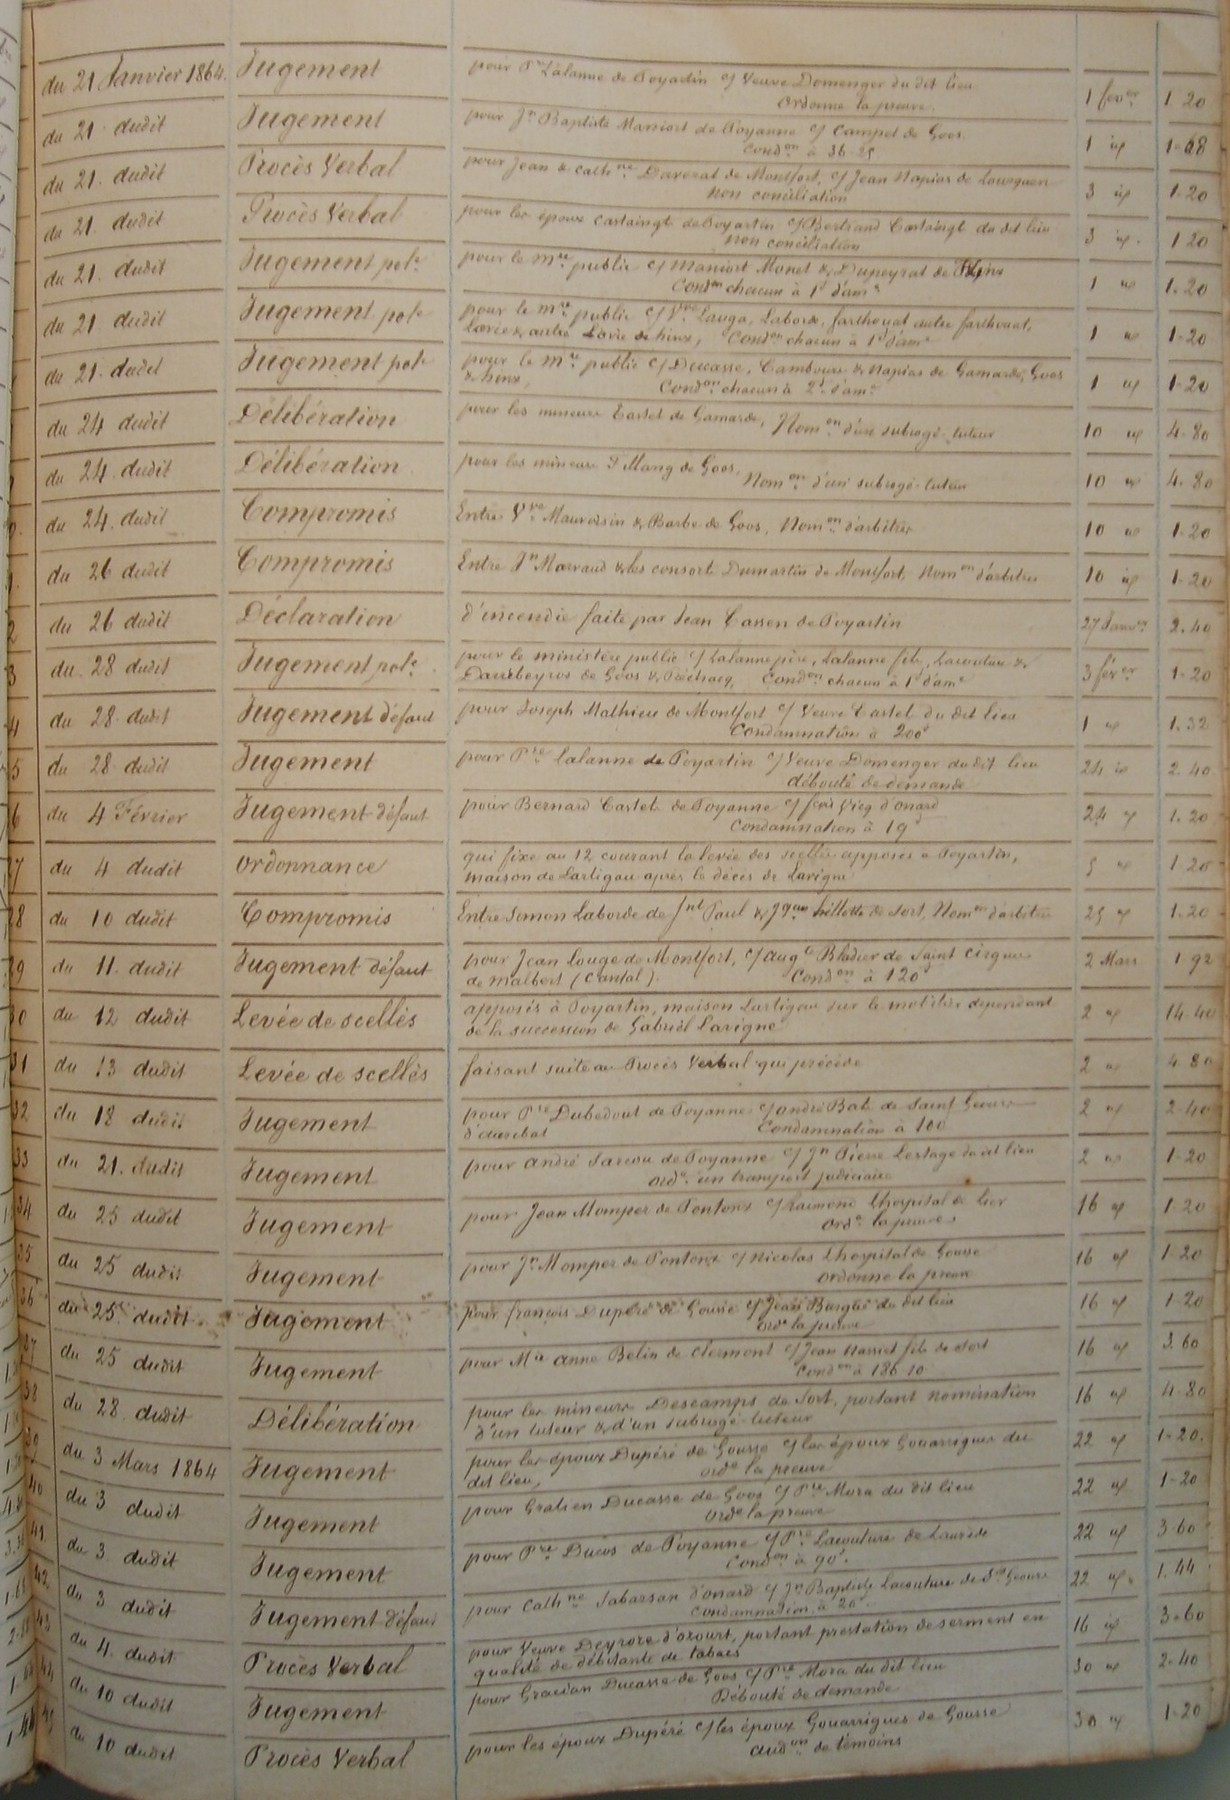 du 21 Janvier 1864. Jugement pour Pre Lalanne de Poyartin c/ Veuve Domenger du dit lieu 1 féver 1. 20
ordonne la preuve.
du 21 dudit Jugement pour Jn Baptiste Maniort de Poyanne c/ Campet de Goos. 1 id 1-68
Condon à 36-25
du 21. dudit Procès Verbal pour Jean & Cathne Daverat de Montfort, c/ Jean Napias de Lourquen 3 id 1-20
Non conciliation
du 21. dudit Procès Verbal pour les époux Castaingt de Poyartin c/ Bertrand Castaingt du dit lieu 3 id. 1 20
Non conciliation
du 21. dudit Jugement pole pour le mre public c/ Maniort Monet & Dupeyrat de 1 id 1. 20
Condon chacun à 1f d'ame
du 21 dudit Jugement pole pour le mre public c/ Vve Lauga, Laborde, farthouat autre farthouat, 1 id 1-20
Lavie & autre Lavie de hinx, Condon chacun à 1f d'ame
du 21. dudit Jugement pole pour le mre public c/ Ducasse, Cambours & Napias de Gamarde, Goos 1 id 1-20
& hinx, Condon chacun à 2f d'ame
du 24 dudit Délibération pour les mineurs Castet de Gamarde, Nomon d'un subrogé-tuteur 10 id 4-80
du 24. dudit Délibération pour les mineurs de Goos. Nomon d'un subrogé-tuteur 10 id 4. 80
du 24. dudit Compromis Entre Vve Mauvoisin & Barbe de Goos, Nomon d'arbitres 10 id 1-20
du 26 dudit Compromis Entre Jn Marvaud & les consorts Dumartin de Montfort, Nomon d'arbitres 10 id 1-20
du 26 dudit Déclaration d'incendie faite par Jean Cassen de Poyartin 27 Janver 2. 40
du 28 dudit Jugement pole pour le ministère public c/ Lalanne père, Lalanne fils, Lacouture & 3 féver 1-20
Darribeyros de Goos & Préchacq, Condon chacun à 1f d'ame
du 28. dudit Jugement défaut pour Joseph Mathieu de Montfort c/ Veuve Castet du dit lieu 1 id 1. 32
Condamnation à 200f
du 28 dudit Jugement pour Pre Lalanne de Poyartin c/ Veuve Domenger du dit lieu 24 id 2. 40
débouté de demande
du 4 Février Jugement défaut pour Bernard Castets de Poyanne c/ Vicq d'onard 24 id 1. 20
Condamnation à 19f
27 du 4 dudit Ordonnance qui fixe au 12 courant la levée des scellés apposés à Poyartin, 5 id 1-20
maison de Lartigau après le décès de Lavigne
28 du 10 dudit Compromis Entre Simon Laborde de Snt Paul & hillotte de Sort, Nomon d'arbitres 25 id 1-20
29 du 11. dudit Jugement défaut pour Jean Louge de Montfort, c/ Augte Bladier de Saint Cirgues 2 Mars 1-92
de malbert (Cantal). Condon à 120f
30 du 12 dudit Levée de scellés apposés à Poyartin, maison Lartigau sur le mobilier dépendant 2 id 14. 40
de la succession de Gabriel Lavigne
31 du 13 dudit Levée de scellés faisant suite au Procès Verbal qui précède 2 id 4 80
32 du 18 dudit Jugement pour Pre Dubedout de Poyanne c/ andré Bats de Saint Geours 2 id 2-40
d'auribat Condamnation à 100
33 du 21. dudit Jugement pour André Sarcou de Poyanne c/ Jn Pierre Lestage du dit lieu 2 id 1-20
orde un transport judiciaire
34 du 25 dudit Jugement pour Jean Mompez de Pontonx c/ Raimond Lhospital de Lier 16 id 1-20
orde la preuve
35 du 25 dudit Jugement pour Jn Mompez de Pontonx c/ Nicolas Lhospital de Gousse 16 id 1-20
ordonne la preuve
36 du 25 dudit Jugement pour françois Dupéré de Gousse c/ Jean Burgué du dit lieu 16 id 1-20
orde la preuve
37 du 25 dudit Jugement pour Mie anne Belin de Clermont c/ Jean fils de Sort 16 id 3. 60
Condon à 186-10
38 du 28 dudit Délibération pour les mineurs Descamps de Sort, portant nomination 16 id 4-80
d'un tuteur & d'un subrogé-tuteur
39 du 3 Mars 1864 Jugement pour les époux Dupéré de Gousse c/ les époux Gouarrigues du 22 id 1-20.
dit lieu, orde la preuve
40 du 3 dudit Jugement pour Gratien Ducasse de Goos c/ Pre Mora du dit lieu 22 id 1-20
orde la preuve
41 du 3 dudit Jugement pour Pre Ducos de Poyanne c/ Pre Lacouture de Laurède 22 id 3-60
Condon à 90f.
42 du 3 dudit Jugement défaut pour Cathne Labarsan d'onard c/ Jn Baptiste Lacouture de St Geours 22 id. 1. 44
Condamnation à 20
43 du 4. dudit Procès Verbal pour Veuve Deyroze d'ozourt, portant prestation de serment en 16 id 3-60
qualité de débitante de tabacs
44 du 10 dudit Jugement pour Gracian Ducasse de Goos c/ Pre Mora du dit lieu 30 id 2-40
Débouté de demande
45 du 10 dudit Procès Verbal pour les époux Dupéré c/ les époux Gouarrigues de Gousse 30 id 1-20
audon de témoins